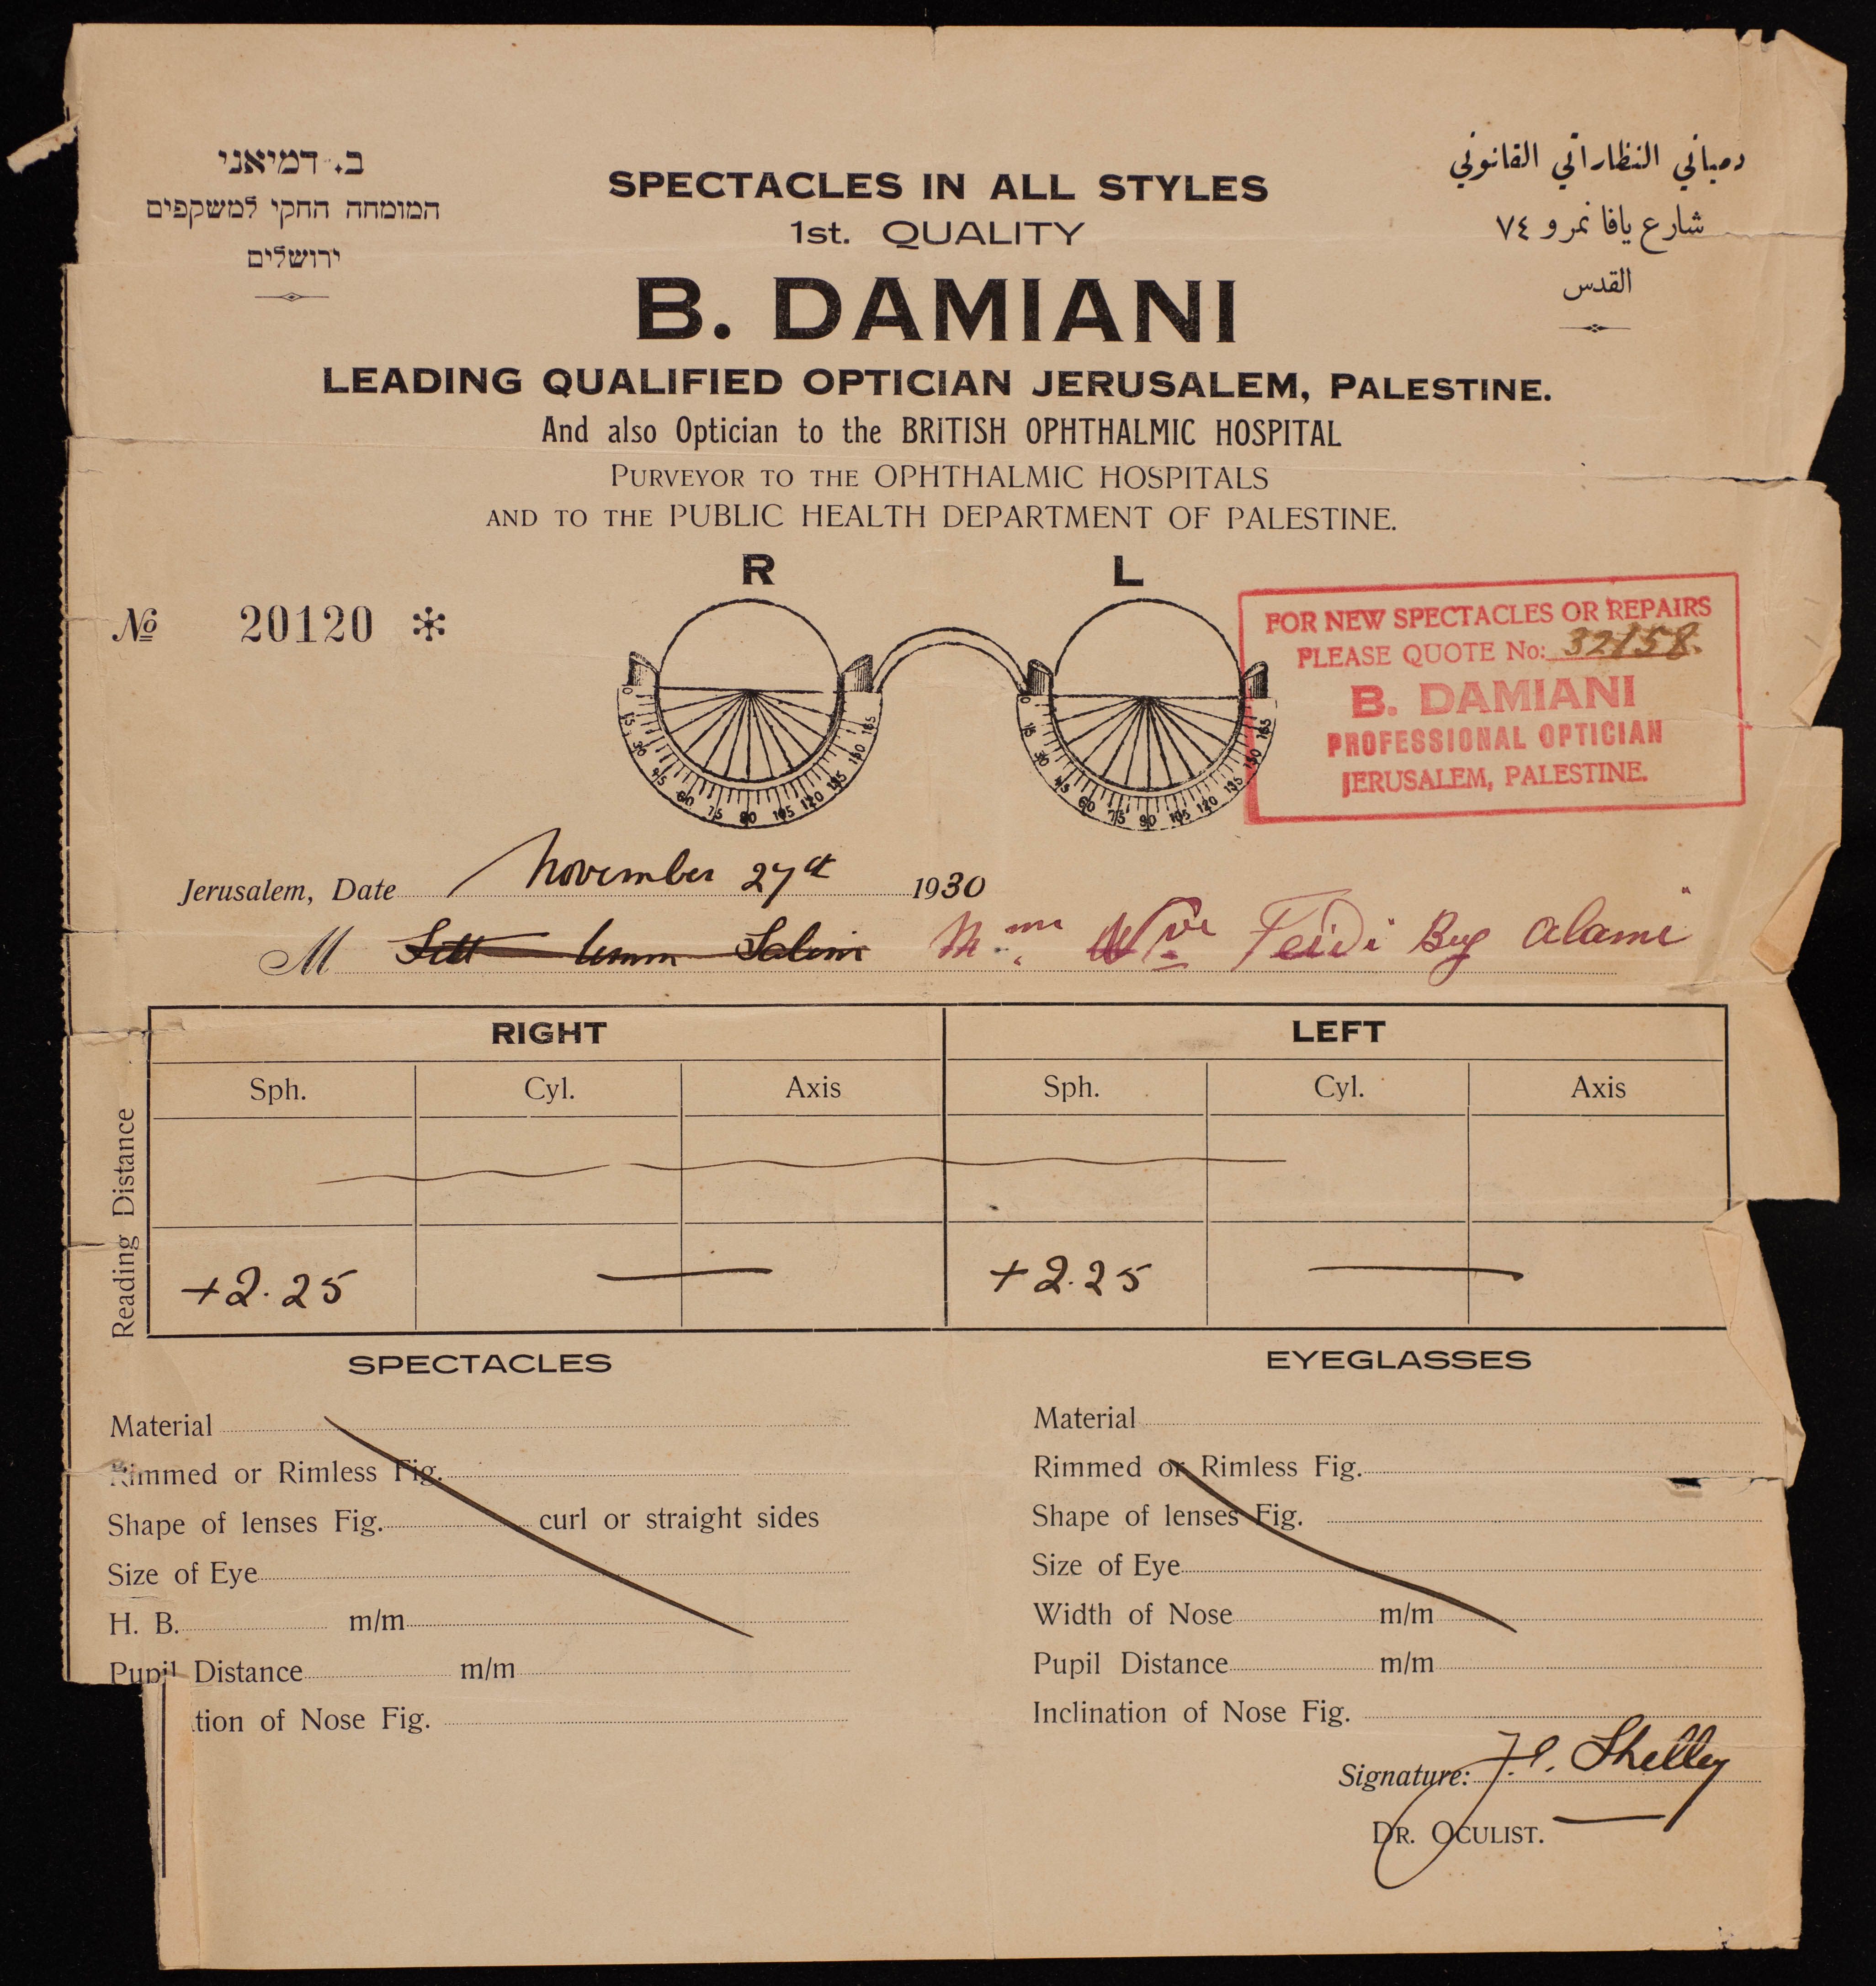 ב. דמיאני
המומחה החקי למשקפים
ירושלים
SPECTACLES IN ALL STYLES
1st. QUALITY
B. DAMIANI
LEADING QUALIFIED OPTICIAN JERUSALEM, PALESTINE.
And also Optician to the BRITISH OPHTHALMIC HOSPITAL
PURVEYOR TO THE OPHTHALMIC HOSPITALS
AND TO THE PUBLIC HEALTH DEPARTMENT OF PALESTINE.
دمياني النظاراتي القانوني
شارع يافا نمرو ٧٤
القدس
№ 20120 *
R L
0 15 30 45 60 75 90 105 120 135 150 165
0 15 30 45 60 75 90 105 120 135 150 165
FOR NEW SPECTACLES OR REPAIRS
PLEASE QUOTE No: 32158.
B. DAMIANI
PROFESSIONAL OPTICIAN
JERUSALEM, PALESTINE.
Jerusalem, Date November 27th 1930
M Sitt Umm Salim Mme Vve Feidi Bey Alami
RIGHT LEFT
Sph. Cyl. Axis Sph. Cyl. Axis
Reading Distance
+2.25 — +2.25 —
SPECTACLES
Material
Rimmed or Rimless Fig.
Shape of lenses Fig. curl or straight sides
Size of Eye
H. B. m/m
Pupil Distance m/m
tion of Nose Fig.
EYEGLASSES
Material
Rimmed or Rimless Fig.
Shape of lenses Fig.
Size of Eye
Width of Nose m/m
Pupil Distance m/m
Inclination of Nose Fig.
Signature: Shelley
DR. OCULIST.